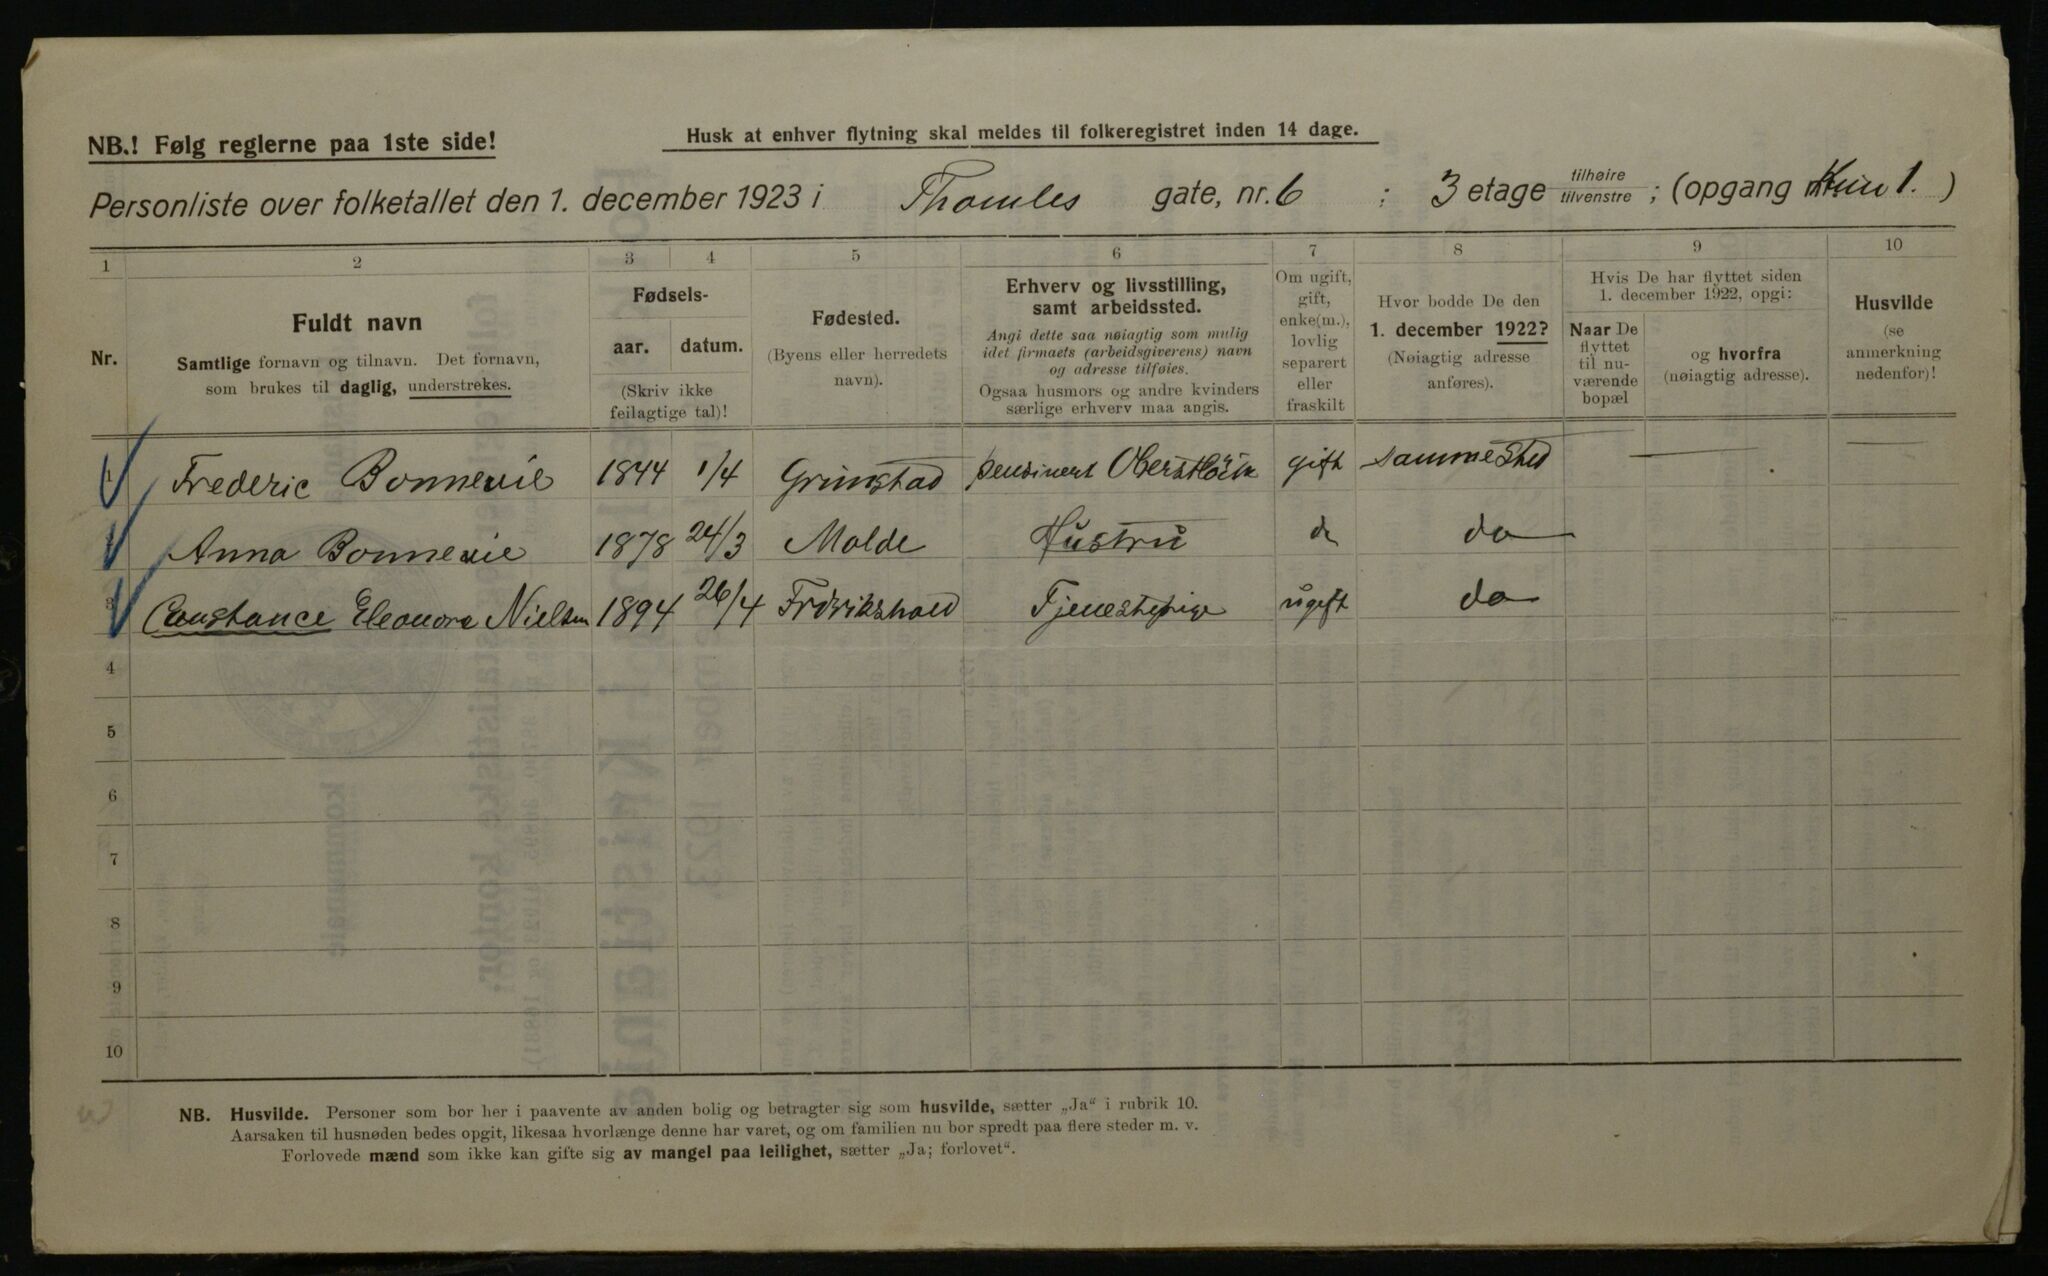 NB.! Følg reglerne paa 1ste side!
Husk at enhver flytning skal meldes til folkeregistret inden 14 dage.
Personliste over folketallet den 1. december 1923 i Thomles gate, nr. 6 ; 3 etage tilhøire tilvenstre ; (opgang Kun 1. )
1 2 3 4 5 6 7 8 9 10
Nr.
Fuldt navn
Samtlige fornavn og tilnavn. Det fornavn,
som brukes til daglig, understrekes.
Fødsels-
aar. datum.
(Skriv ikke
feilagtige tal)!
Fødested.
(Byens eller herredets
navn).
Erhverv og livsstilling,
samt arbeidssted.
Angi dette saa nøiagtig som mulig
idet firmaets (arbeidsgiverens) navn
og adresse tilføies.
Ogsaa husmors og andre kvinders
særlige erhverv maa angis.
Om ugift,
gift,
enke(m.),
lovlig
separert
eller
fraskilt
Hvor bodde De den
1. december 1922?
(Nøiagtig adresse
anføres).
Hvis De har flyttet siden
1. december 1922, opgi:
Naar De
flyttet
til nu-
værende
bopæl
og hvorfra
(nøiagtig adresse).
Husvilde
(se
anmerkning
nedenfor)!
1 Frederic Bonnevie 1844 1/4 Grimstad pensinert gift samme sted
2 Anna Bonnevie 1878 24/3 Molde Hustru do do
3 Constance Eleonora Nielsen 1894 26/4 Fredrikshald Tjenestepige ugift do
4
5
6
7
8
9
10
NB. Husvilde. Personer som bor her i paavente av anden bolig og betragter sig som husvilde, sætter „Ja" i rubrik 10.
Aarsaken til husnøden bedes opgit, likesaa hvorlænge denne har varet, og om familien nu bor spredt paa flere steder m. v.
Forlovede mænd som ikke kan gifte sig av mangel paa leilighet, sætter „Ja; forlovet".